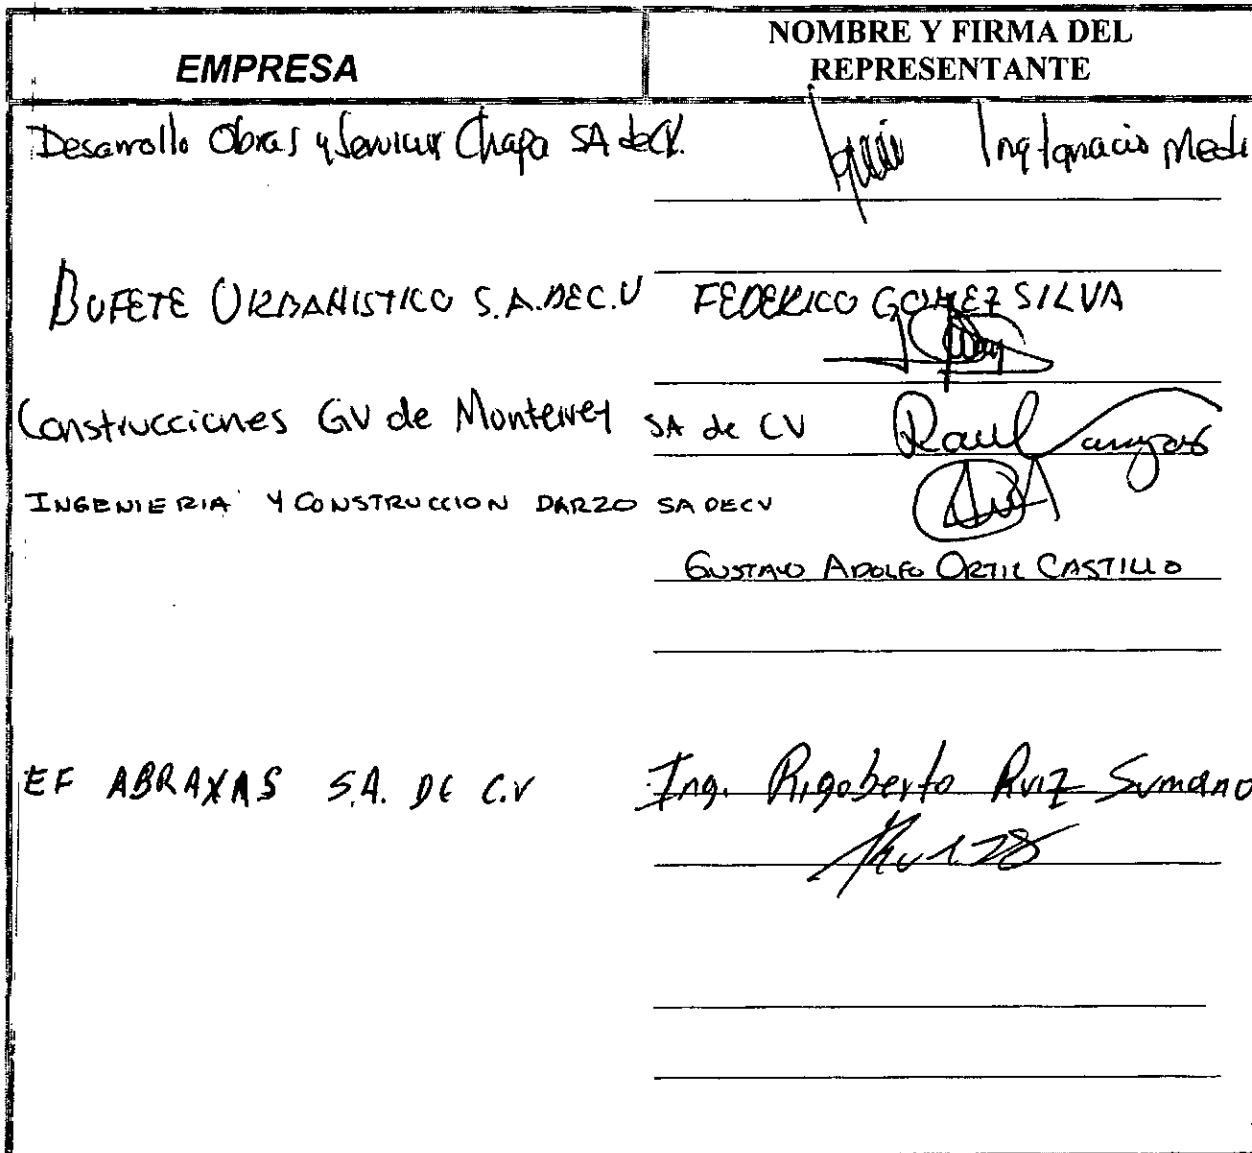 EMPRESA
NOMBRE Y FIRMA DEL
REPRESENTANTE
Desarrollo Obras y Servicios Chapa SA de CV.
Ing Ignacio Medi
BUFETE URBANISTICO S.A. DE C.V
FEDERICO GOMEZ SILVA
Construcciones GV de Monterrey SA de CV
Raul
INGENIERIA Y CONSTRUCCION DARZO SA DE CV
GUSTAVO ADOLFO ORTIZ CASTILLO
EF ABRAXAS S.A. DE C.V
Ing. Rigoberto Ruiz Sumano